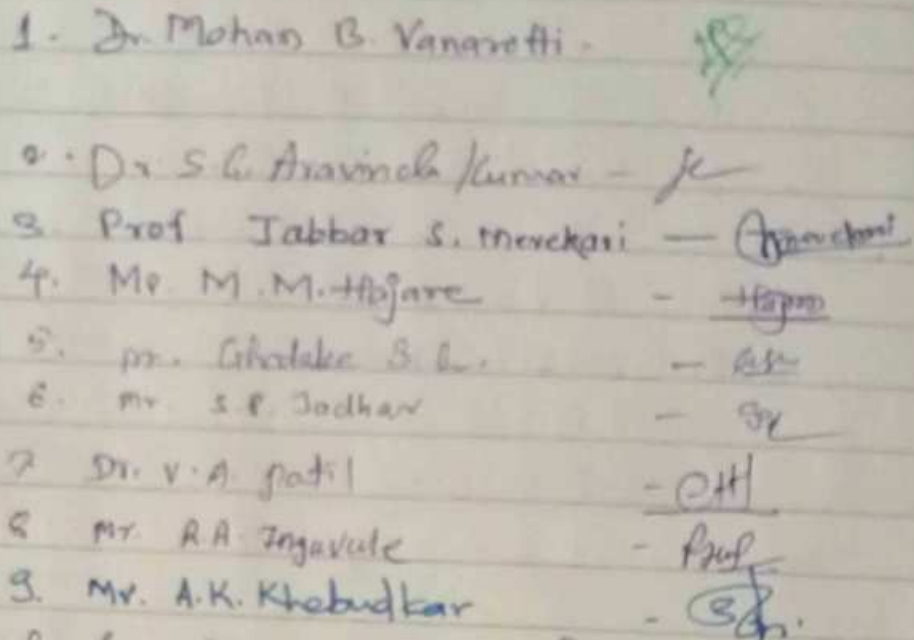 1. Dr. Mohan B. Vanarotti.
2. Dr S G Aravinda Kumar -
3 Prof Jabbar S. Merekari —
4. Mr M.M. Hajare -
5. Mr. Ghodake S. -
6. Mr. S.P. Jadhav -
7 Dr. V.A. patil -
8 Mr. R.A. Ingavale -
9. Mr. A.K. Khebudkar -